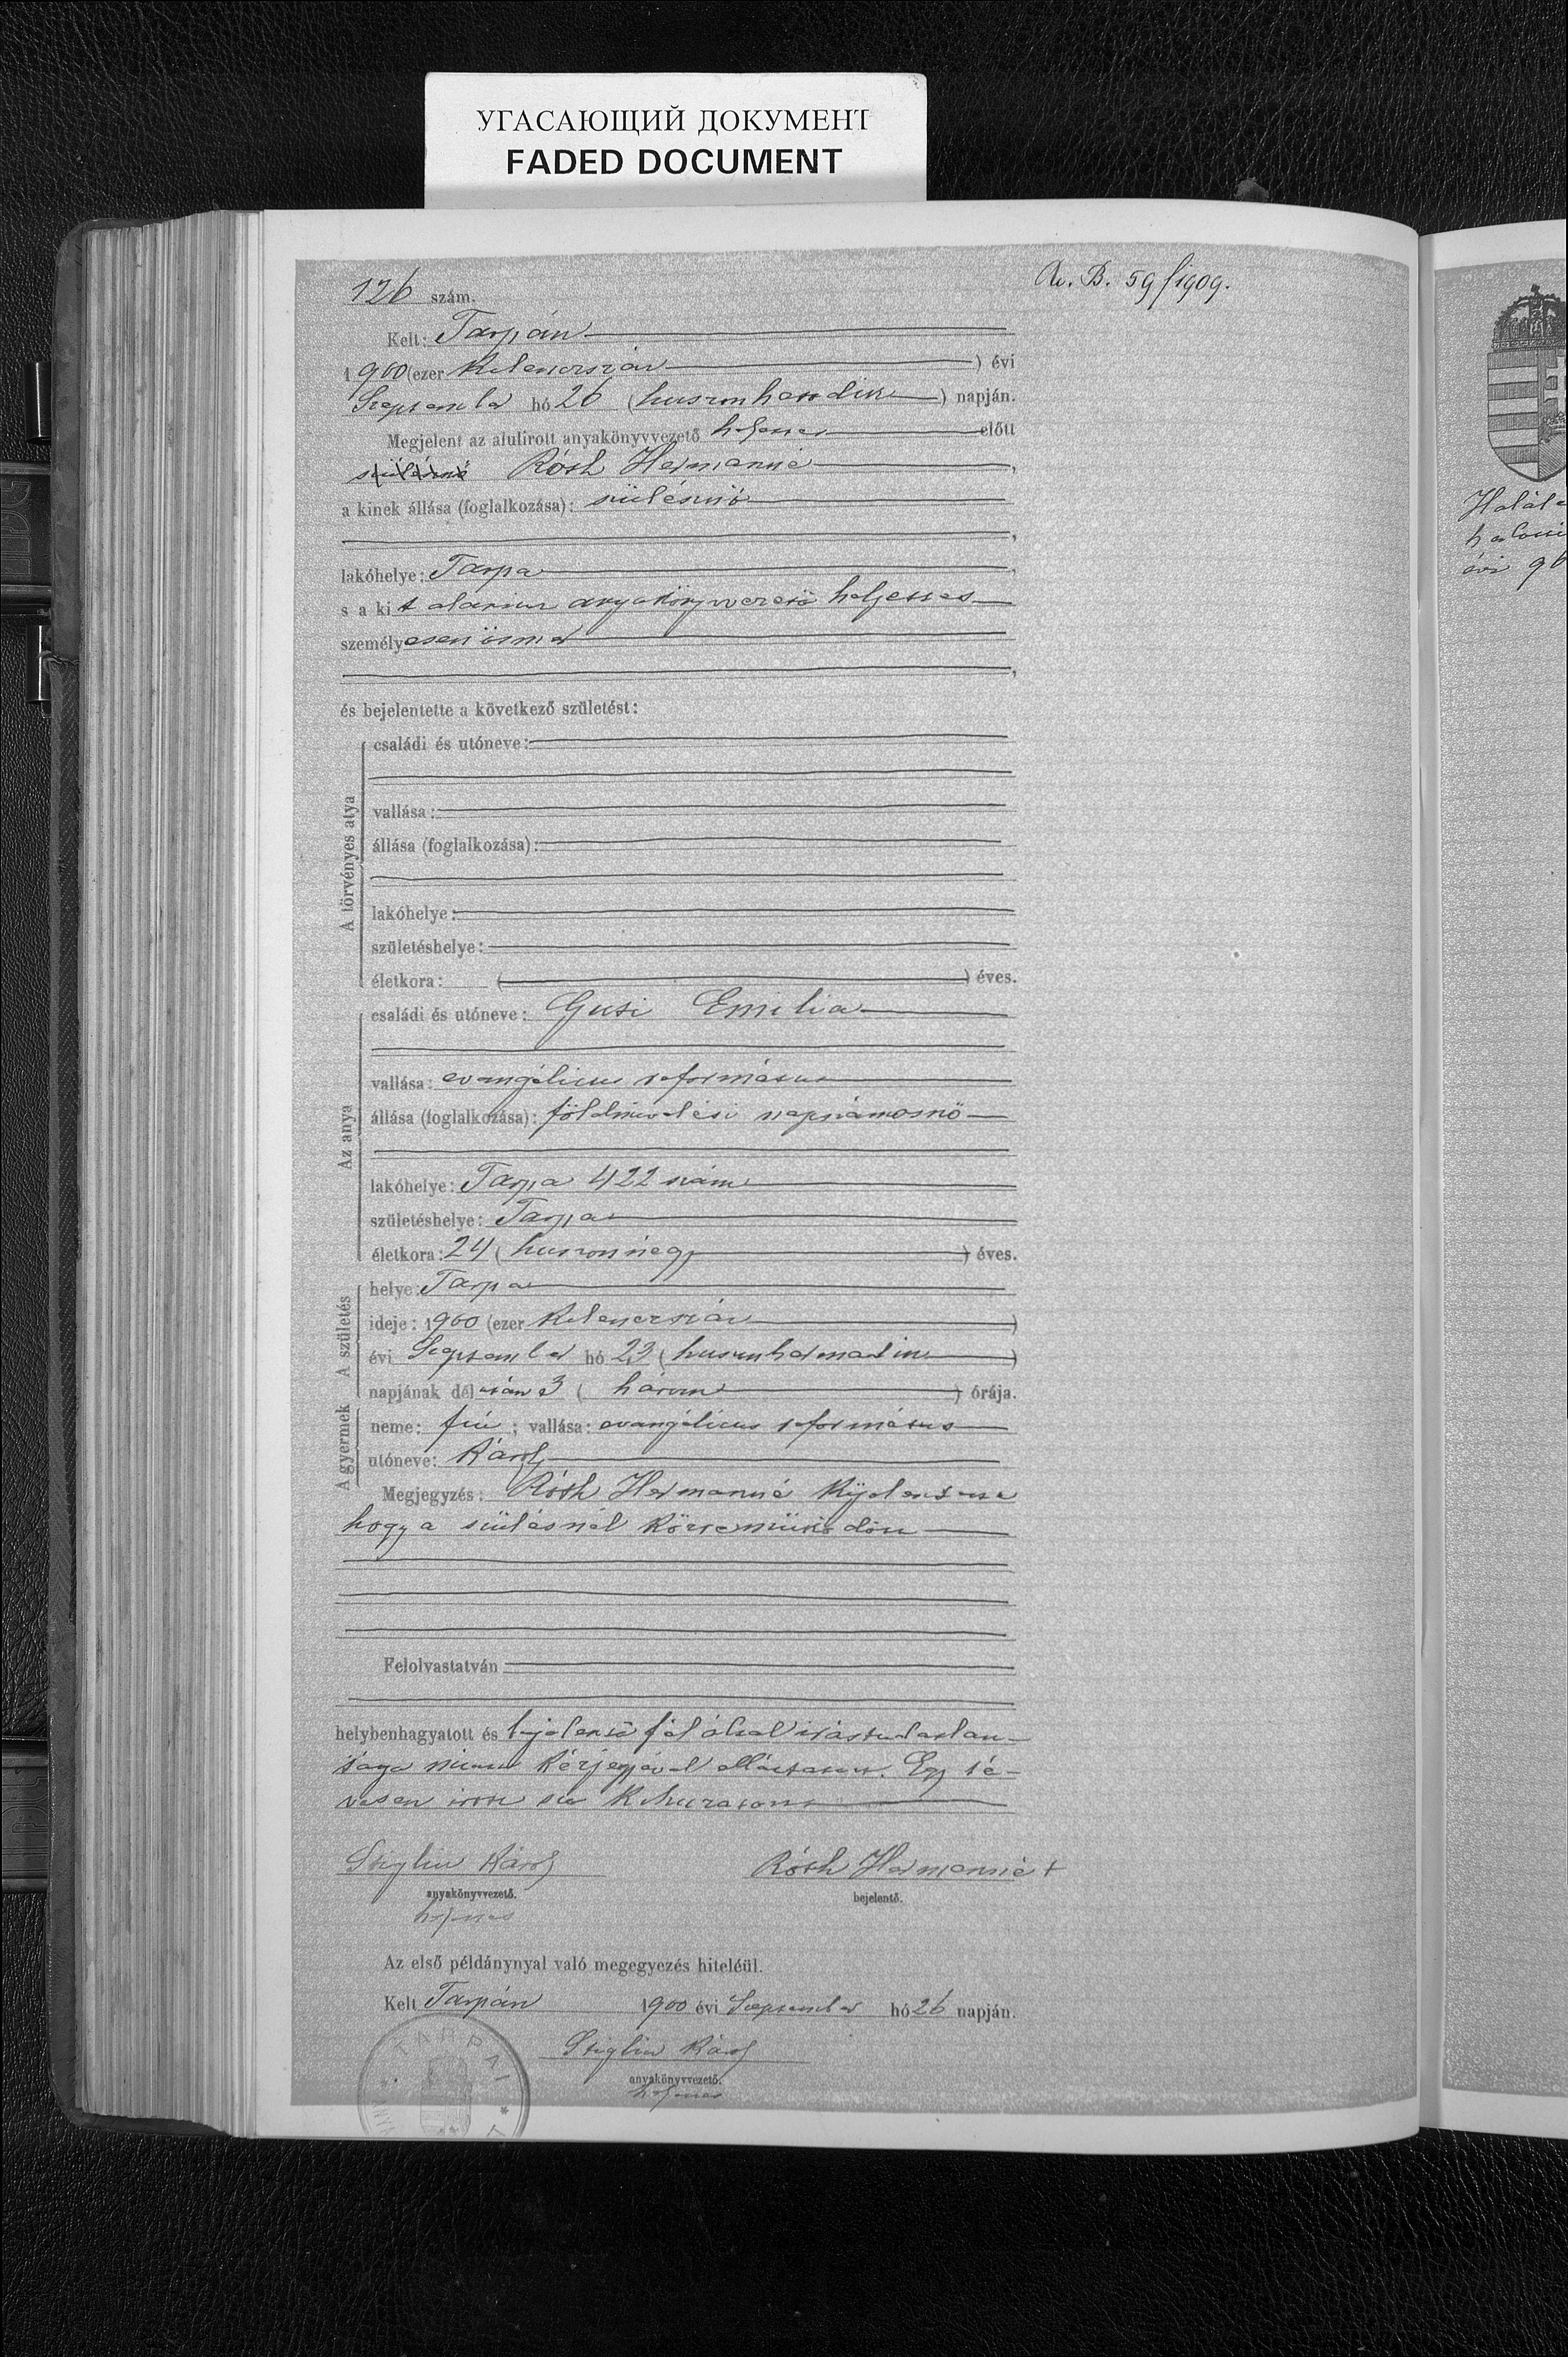 УГАСАЮЩИЙ ДОКУМЕНТ
FADED DOCUMENT
126 szám.
A. B. 59/1909.
Kelt: Tarpán
1900 (ezer kilencszáz ) évi
Szeptember hó 26 (huszonhatodik ) napján.
Megjelent az alulirott anyakönyvvezető helyettes előtt
szülésznő Róth Hermanné ,
a kinek állása (foglalkozása): szülésznő
,
lakóhelye: Tarpa ,
s a kit alarirt anyakönyvvezető helyettes
személyesen ismer
,
és bejelentette a következő születést:
A törvényes atya
családi és utóneve:
vallása:
állása (foglalkozása):
lakóhelye:
születéshelye:
életkora: ( ) éves.
Az anya
családi és utóneve: Gusi Emilia
vallása: evangélicus református
állása (foglalkozása): földmivelési napszámosnő
lakóhelye: Tarpa 422 szám
születéshelye: Tarpa
életkora: 24 (huszonnégy ) éves.
A születés
helye: Tarpa
ideje: 1900 (ezer kilencszáz )
évi Szeptember hó 23 (huszonharmadik )
napjának délután 3 ( három ) órája.
A gyermek
neme: fiú ; vallása: evangélicus református
utóneve: Károly
Megjegyzés: Róth Hermanné kijelentette
hogy a szülésnél közreműködött
Felolvastatván
helybenhagyatott és bejelentő fél által irástudatlan-
sága miatt kézjegyével elláttatott. Egy té-
vesen irott szó kihuzatott
Stiglin Károly
anyakönyvvezető.
helyettes
Róth Hermanné +
bejelentő.
Az első példánynyal való megegyezés hiteléül.
Kelt Tarpán 1900 évi Szeptember hó 26 napján.
Stiglin Károly
anyakönyvvezető.
helyettes
TARPAI